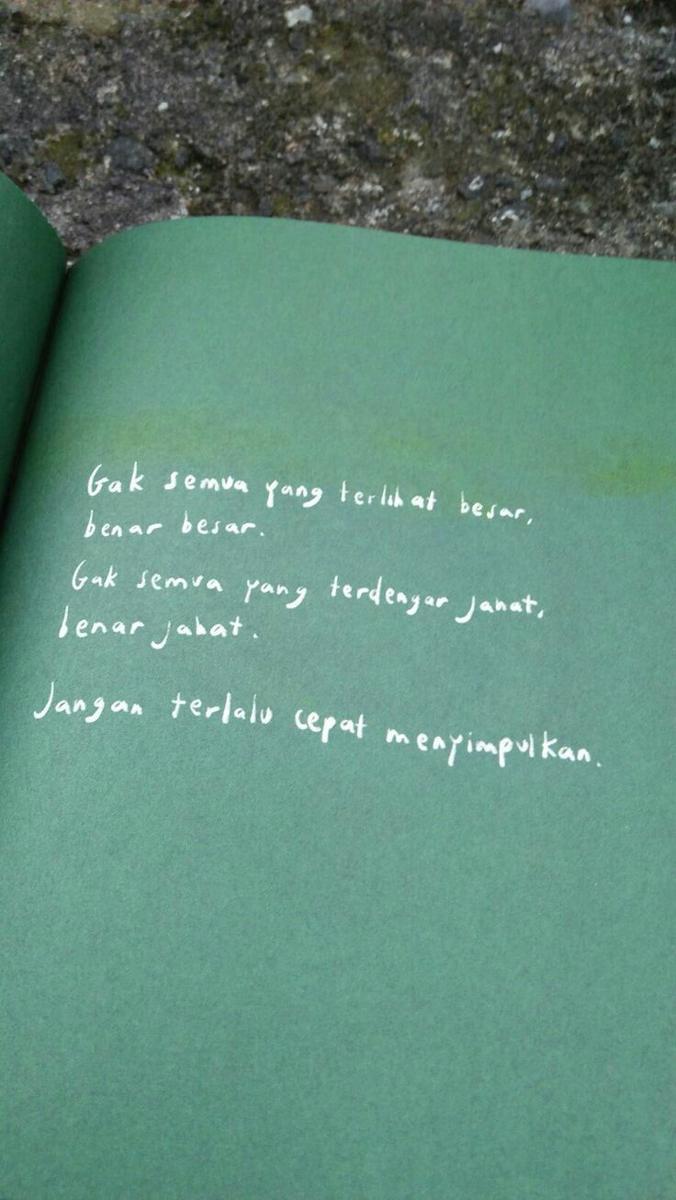 Gak semua yang terlihat besar,
benar besar.
Gak semua yang terdengar jahat,
benar jahat.
Jangan terlalu cepat menyimpulkan.